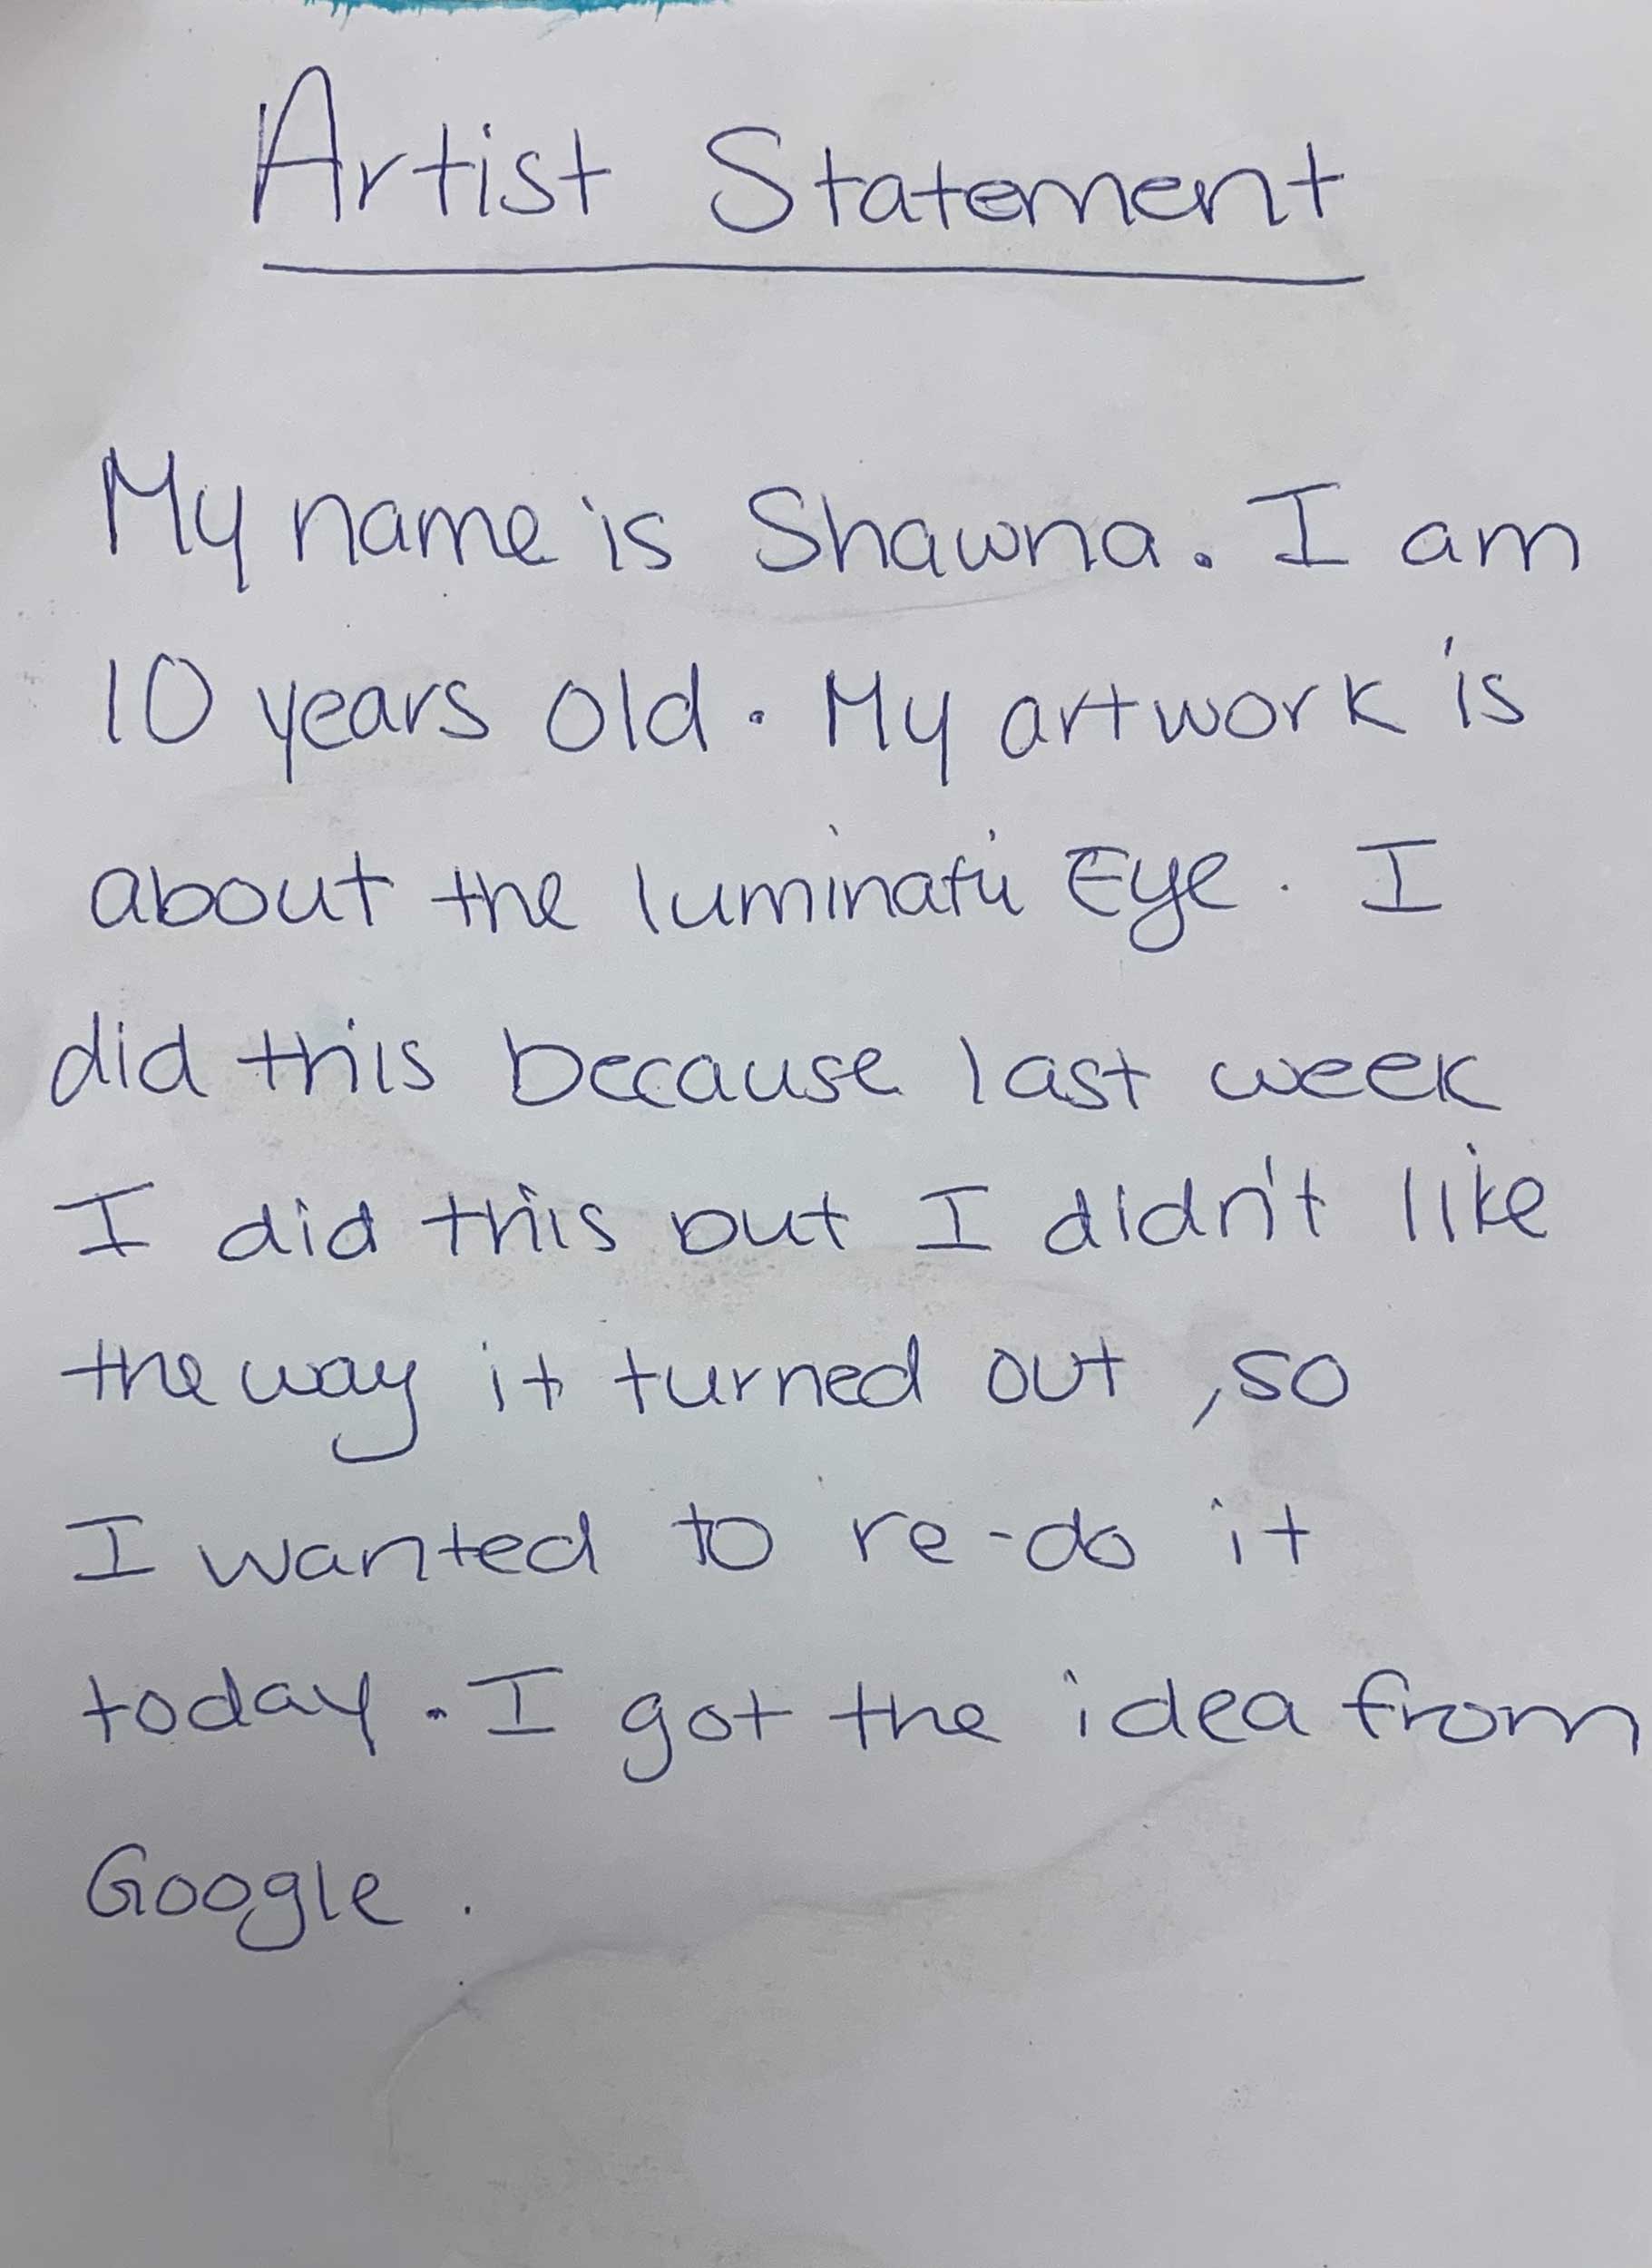 Artist Statement
My name is Shawna. I am
10 years old. My artwork is
about the luminatii Eye. I
did this because last week
I did this but I didn't like
the way it turned out, so
I wanted to re-do it
today. I got the idea from
Google.